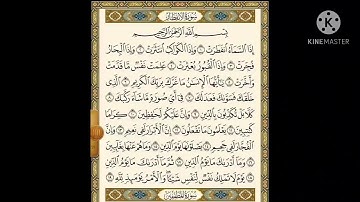 Made with
KINEMASTER
سُورَةُ الِانفِطَارِ
بِسْمِ اللَّهِ الرَّحْمَٰنِ الرَّحِيمِ
إِذَا السَّمَاءُ انفَطَرَتْ ۝١ وَإِذَا الْكَوَاكِبُ انتَثَرَتْ ۝٢ وَإِذَا الْبِحَارُ
فُجِّرَتْ ۝٣ وَإِذَا الْقُبُورُ بُعْثِرَتْ ۝٤ عَلِمَتْ نَفْسٌ مَّا قَدَّمَتْ
وَأَخَّرَتْ ۝٥ يَٰأَيُّهَا الْإِنسَٰنُ مَا غَرَّكَ بِرَبِّكَ الْكَرِيمِ ۝٦ الَّذِي
خَلَقَكَ فَسَوَّىٰكَ فَعَدَلَكَ ۝٧ فِي أَيِّ صُورَةٍ مَّا شَاءَ رَكَّبَكَ ۝٨
كَلَّا بَلْ تُكَذِّبُونَ بِالدِّينِ ۝٩ وَإِنَّ عَلَيْكُمْ لَحَٰفِظِينَ ۝١٠ كِرَامًا
كَٰتِبِينَ ۝١١ يَعْلَمُونَ مَا تَفْعَلُونَ ۝١٢ إِنَّ الْأَبْرَارَ لَفِي نَعِيمٍ ۝١٣ وَإِنَّ
الْفُجَّارَ لَفِي جَحِيمٍ ۝١٤ يَصْلَوْنَهَا يَوْمَ الدِّينِ ۝١٥ وَمَا هُمْ عَنْهَا بِغَائِبِينَ
۝١٦ وَمَا أَدْرَىٰكَ مَا يَوْمُ الدِّينِ ۝١٧ ثُمَّ مَا أَدْرَىٰكَ مَا يَوْمُ الدِّينِ
۝١٨ يَوْمَ لَا تَمْلِكُ نَفْسٌ لِّنَفْسٍ شَيْئًا وَالْأَمْرُ يَوْمَئِذٍ لِّلَّهِ ۝١٩
سُورَةُ الْمُطَفِّفِينَ